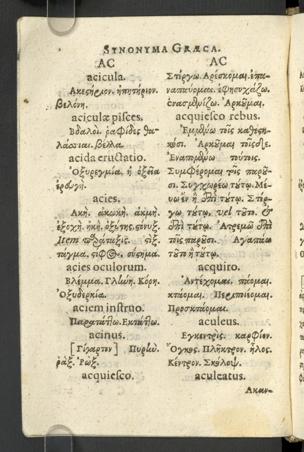 SYNONYMA GRÆCA.
AC
acicula.
Ἀκεστήριον. ἠπητήριον.
βελόνη.
aciculæ pisces.
Βδαλοί. ῥαφίδες θα-
λάσσιαι. βέλλα.
acida eructatio.
Ὀξυρεγμία. ἡ ὀξεῖα
ἐρυγή.
acies.
Ἀκή. ἀκωκή. ἀκμή.
ἐξοχή. ἠκή. ὀξύτης.
Item
acies oculorum.
Βλέμμα. Γλήνη. Κόρη.
Ὀξυδερκία.
aciem instruo.
Παρατάττω. Ἐκτάττω.
acinus.
[Γίγαρτον]
ῥάξ. Ῥώξ.
acquiesco.
AC
Στέργω. Ἀρέσκομαι. ἐπα-
ναπαύομαι. ἐφησυχάζω.
Ἀρκοῦμαι.
acquiesco rebus.
Ἐμμένω τοῖς καθεστη-
κόσι. Ἀρκοῦμαι τοῖσδε.
τούτοις.
Συμφέρομαι τοῖς παροῦ-
σι. Συγχωρέω τούτῳ. Μέ-
νω τούτῳ. Στέρ-
γω τούτῳ, vel τοῦτο. &
τούτῳ. Ἀτρεμῶ ἐπὶ
τοῖς παροῦσι. Ἀγαπάω
τοῦτο ἢ τούτῳ.
acquiro.
Ἀντέχομαι.
κτάομαι. Περιποιέομαι.
Προσκτάομαι.
aculeus.
Ἐγκεντρίς. καρφίον.
Ὄγκος. Πλῆκτρον. ἧλος.
Κέντρον. Σκόλοψ.
aculeatus.
Ἀκαν-